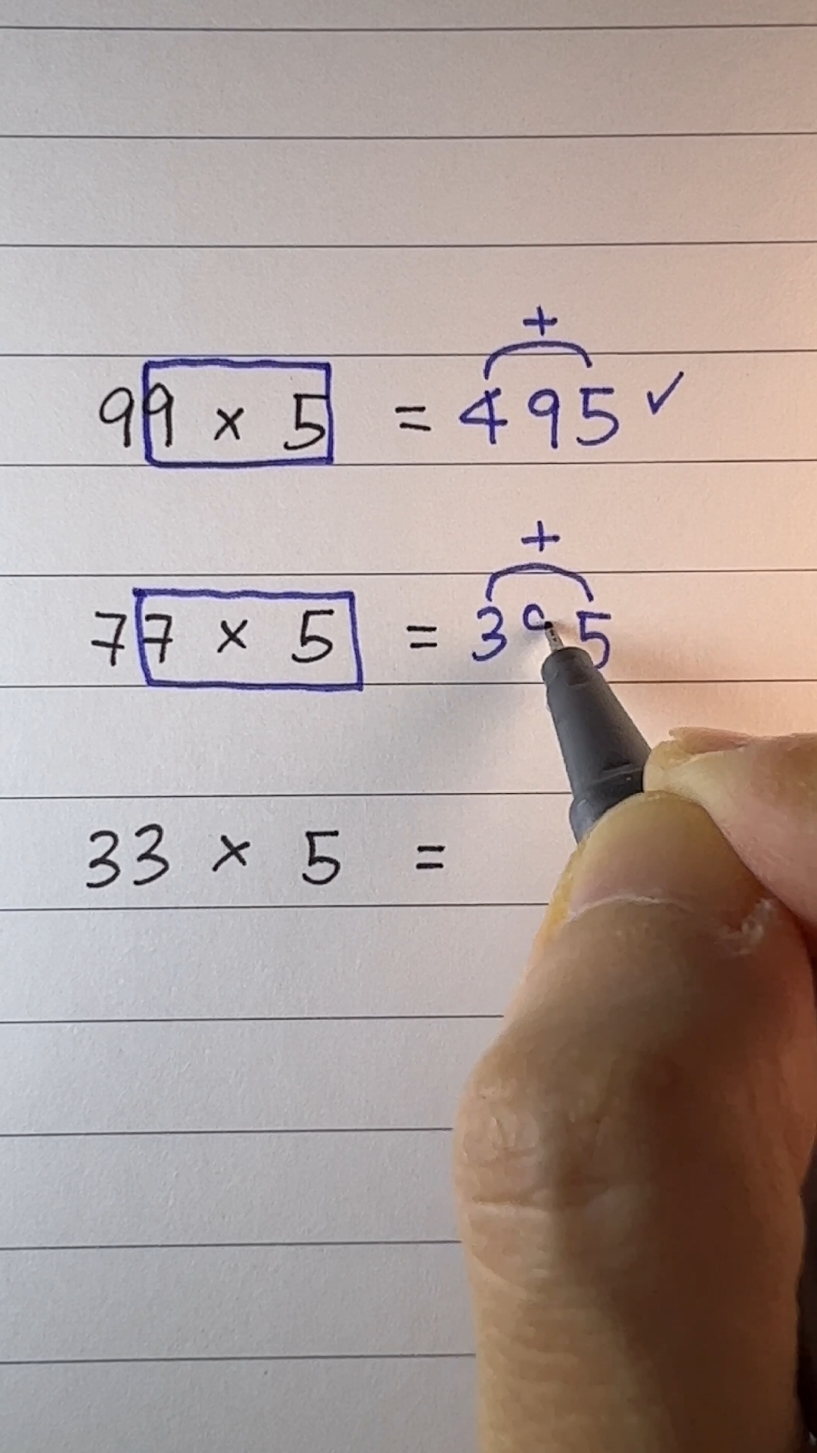 +
99 × 5 = 495 ✓
+
77 × 5 = 3 5
33 × 5 =